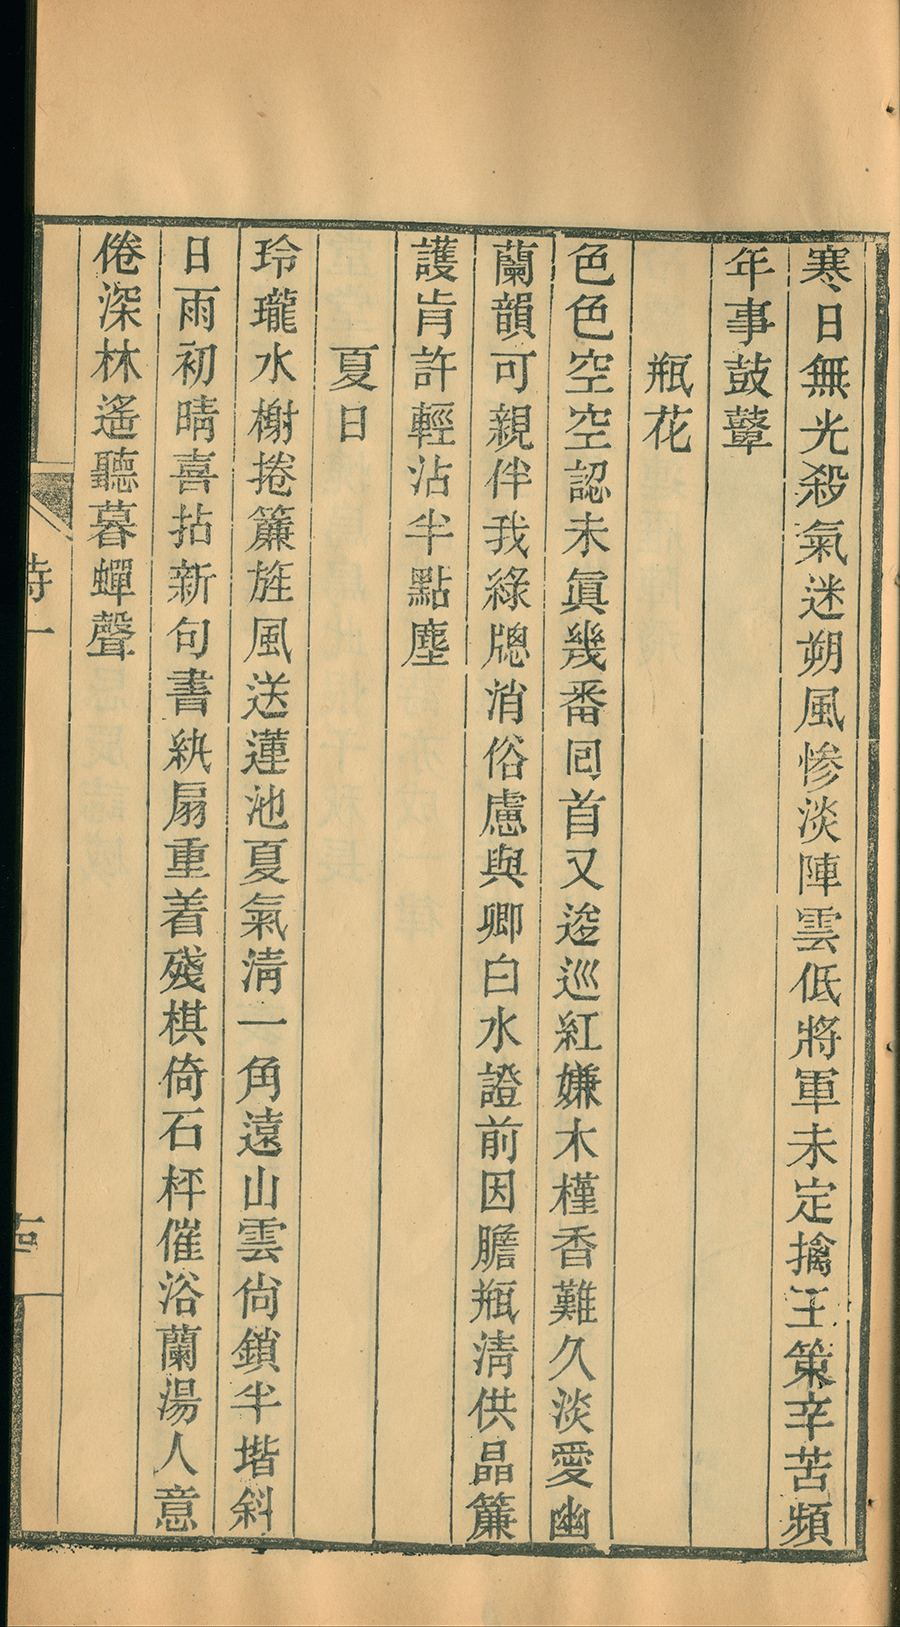 寒日無光殺氣迷朔風慘淡陣雲低將軍未定擒王策辛苦頻
年事鼓鼙
瓶花
色色空空認未眞幾番囘首又逡巡紅嫌木槿香難久淡愛幽
蘭韻可親伴我綠牕消俗慮與卿白水證前因膽瓶淸供晶簾
護肯許輕沾半點塵
夏日
玲瓏水榭捲簾旌風送蓮池夏氣淸一角遠山雲尙鎖半堦斜
日雨初晴喜拈新句書紈扇重着殘棋倚石枰催浴蘭湯人意
倦深林遙聽暮蟬聲
詩一